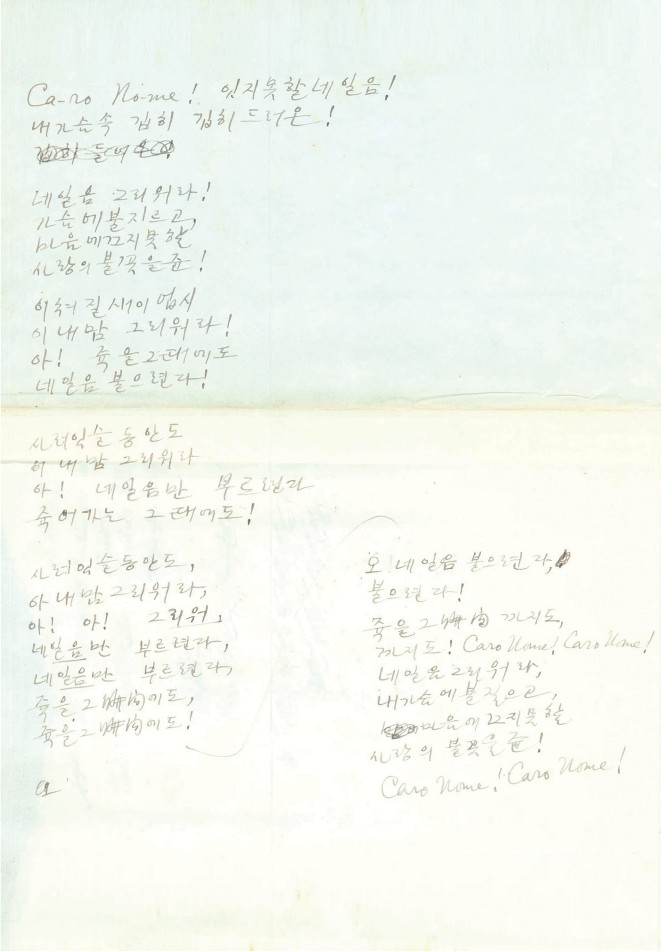 Ca-ro No-me!잇지못할네일음!
내가슴속 깁히 깁히드러온!
네일음 그리워라!
가슴에불지르고,
마음에끄지못할
사랑의불꽃을준!
이처 질새이업시
이내맘 그리워라!
아! 죽을그때에도
네일음 불으련다!
사러잇슬동안도
이내맘그리워라
아! 네일음만 부르련다
죽어가는 그때에도!
사러잇슬동안도,
아내맘그리워라,
아! 아! 그리워,
네일음만 부르련다,
네일음만 부르련다,
죽을그瞬间에도,
죽을그瞬间에도!
오 네일음 불으련다,
불으련다!
죽을그瞬间 까지도,
까지도! Caro Nome! Caro Nome!
네일음그리워라,
내가슴에불질으고,
마음에끄지못할
사랑의 불꽃을준!
Caro Nome! Caro Nome!